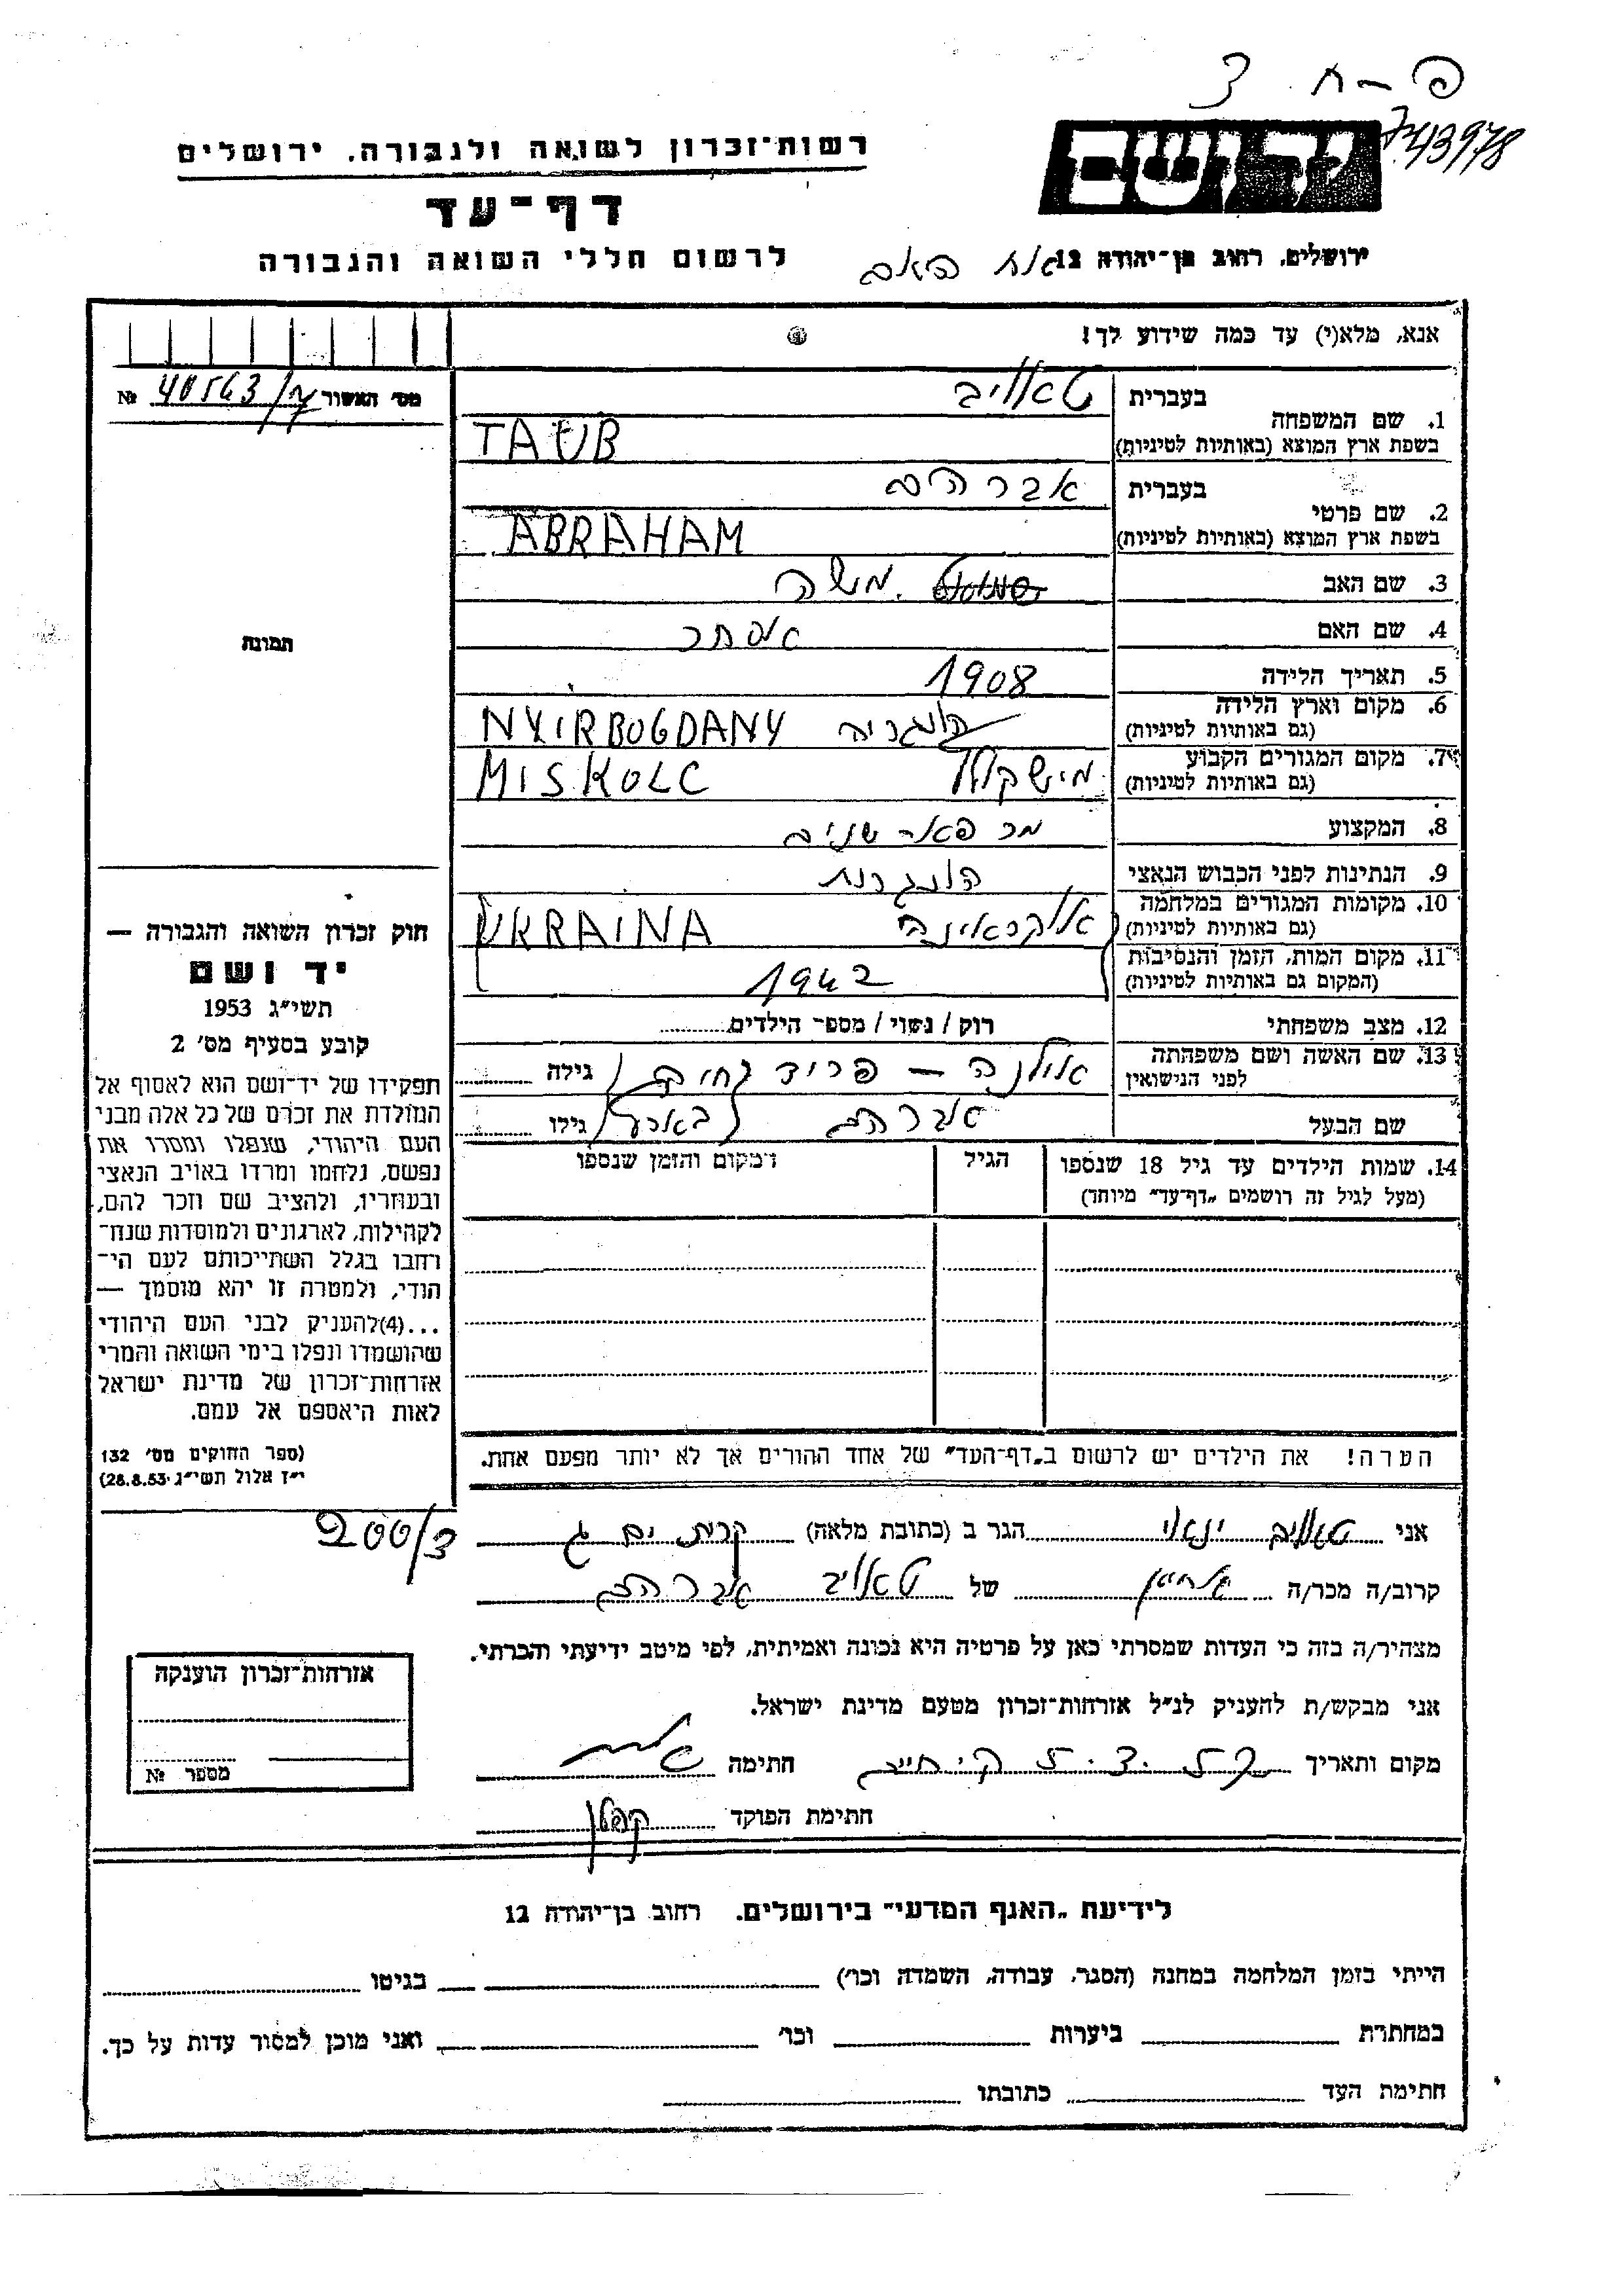 743978
ידושם
רשות־זכרון לשואה ולגבורה. ירושלים
דף־עד
ירושלים, רחוב בן־יהודה 12
לרשום חללי השואה והגבורה
אנא, מלא(י) עד כמה שידוע לך!
מס' האשור № 40563/
בעברית טאוב
1. שם המשפחה
בשפת ארץ המוצא (באותיות לטיניות) TAUB
בעברית אברהם
2. שם פרטי
בשפת ארץ המוצא (באותיות לטיניות) ABRAHAM
3. שם האב משה
4. שם האם אסתר
5. תאריך הלידה 1908
6. מקום וארץ הלידה הונגריה NYIRBOGDANY
(גם באותיות לטיניות)
7. מקום המגורים הקבוע מישקולץ MISKOLC
(גם באותיות לטיניות)
8. המקצוע טכנאי שניים
9. הנתינות לפני הכבוש הנאצי הונגרית
10. מקומות המגורים במלחמה אוקראינה UKRAINA
(גם באותיות לטיניות)
11. מקום המות, הזמן והנסיבות 1942
(המקום גם באותיות לטיניות)
12. מצב משפחתי רוק / נשוי / מספר הילדים
13. שם האשה ושם משפחתה
לפני הנישואין אילנה – פריד גילה
שם הבעל אברהם גילו
14. שמות הילדים עד גיל 18 שנספו הגיל המקום והזמן שנספו
(מעל לגיל זה רושמים „דף־עד" מיוחד)
הערה! את הילדים יש לרשום ב„דף־העד" של אחד ההורים אך לא יותר מפעם אחת.
תמונה
חוק זכרון השואה והגבורה —
יד ושם
תשי"ג 1953
קובע בסעיף מס' 2
תפקידו של יד־ושם הוא לאסוף אל
המולדת את זכרם של כל אלה מבני
העם היהודי, שנפלו ומסרו את
נפשם, נלחמו ומרדו באויב הנאצי
ובעוזריו, ולהציב שם וזכר להם,
לקהילות, לארגונים ולמוסדות שנח־
רחבו בגלל השתייכותם לעם הי־
הודי, ולמטרה זו יהא מוסמך —
...(4)להעניק לבני העם היהודי
שהושמדו ונפלו בימי השואה והמרי
אזרחות־זכרון של מדינת ישראל
לאות היאספם אל עמם.
(ספר החוקים מס' 132
י"ז אלול תשי"ג 28.8.53)
אני טאוב ינאי הגר ב (כתובת מלאה) קרית ים ג 200/3
קרוב/ה מכר/ה של טאוב אברהם
מצהיר/ה בזה כי העדות שמסרתי כאן על פרטיה היא נכונה ואמיתית, לפי מיטב ידיעתי והכרתי.
אני מבקש/ת להעניק לנ"ל אזרחות־זכרון מטעם מדינת ישראל.
מקום ותאריך חתימה
חתימת הפוקד
אזרחות־זכרון הוענקה
מספר №
לידיעת „האגף המדעי" בירושלים. רחוב בן־יהודה 12
הייתי בזמן המלחמה במחנה (הסגר, עבודה, השמדה וכו') בגיטו
במחתרת ביערות וכו' ואני מוכן למסור עדות על כך.
חתימת העד כתובתו